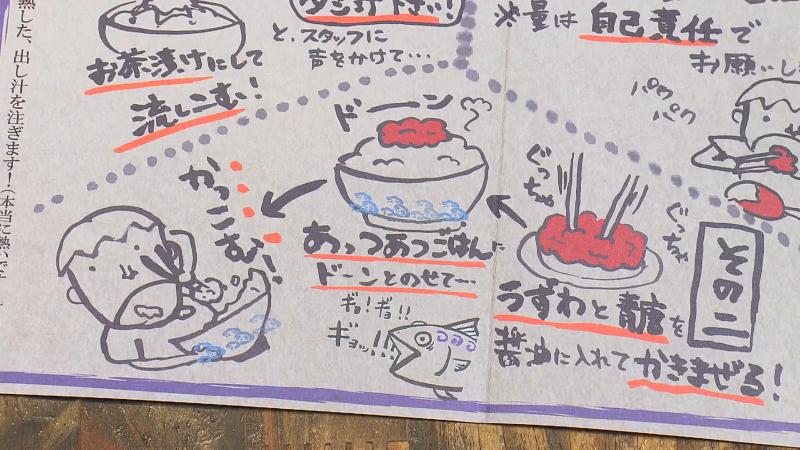 タン打下さい!
と、スタッフに
声をかけて…
米量は自己責任で
お願いし
パクパク
お茶漬けにして
流しこむ!
熱した、出し汁を注ぎます!(本当に熱いで
その二
うずわと青唐を
醤油に入れてかきまぜる!
ぐっちゃ
ぐっちゃ
ドーン
あっつあつごはんに
ドーンとのせて…
ギョ!ギョ!!
ギョッ!!
かっこむ!